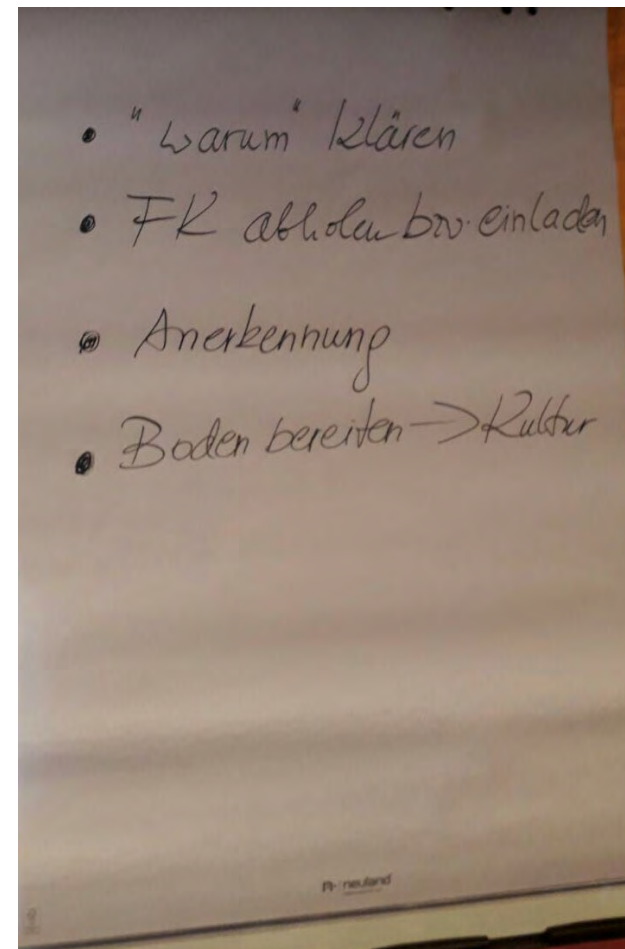 • "warum" klären
• FK abholen bzw. einladen
• Anerkennung
• Boden bereiten → Kultur
neuland